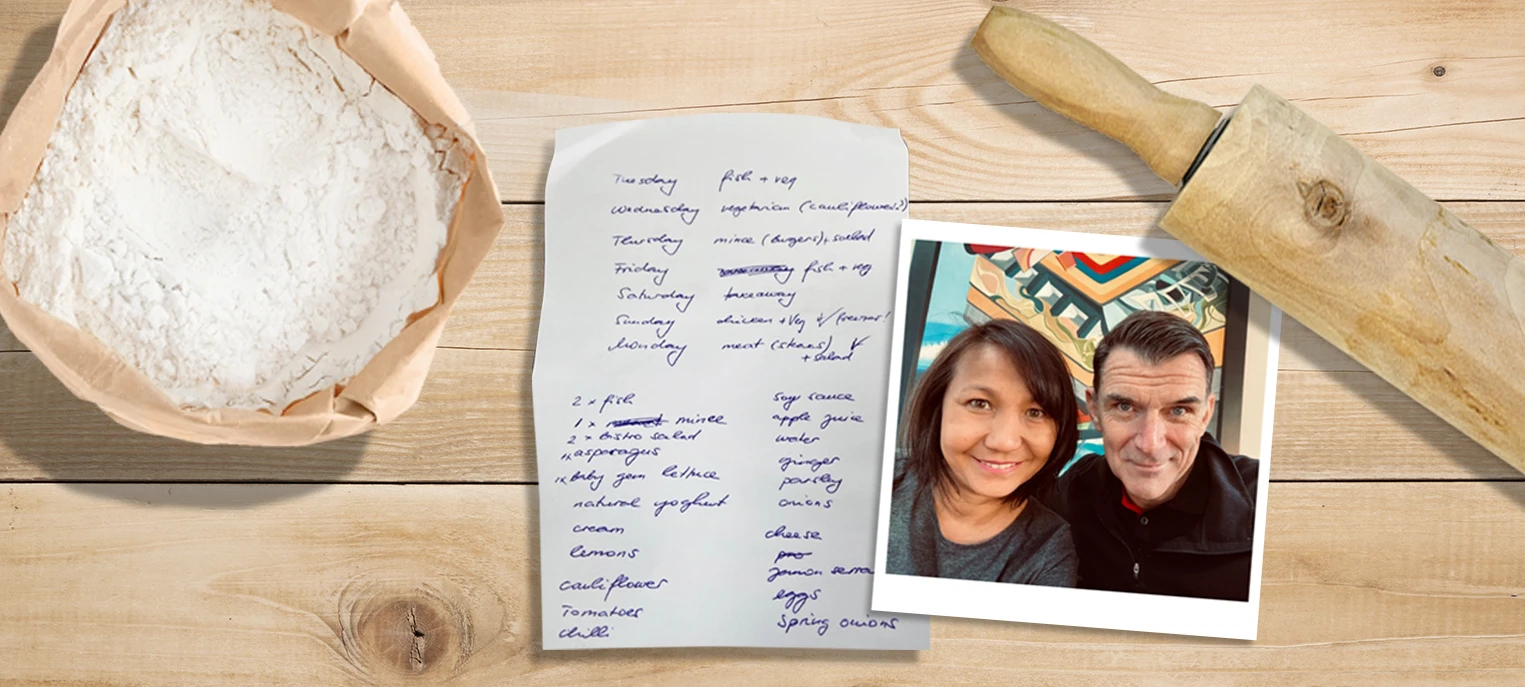 Tuesday fish + veg
Wednesday vegetarian (cauliflower?)
Thursday mince (burgers) + salad
Friday fish + veg
Saturday takeaway
Sunday chicken + Veg freezer!
Monday meat (steaks)
+ salad
2 x fish
1 x mince
2 x Bistro salad
1x asparagus
1x Baby gem lettuce
natural yoghurt
cream
lemons
cauliflower
Tomatoes
chilli
soy sauce
apple juice
water
ginger
parsley
onions
cheese
Jamon
eggs
Spring onions